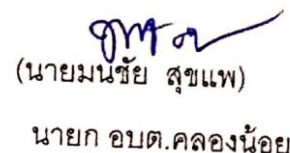 (นายมนชัย สุขแพ)
นายก อบต.คลองน้อย